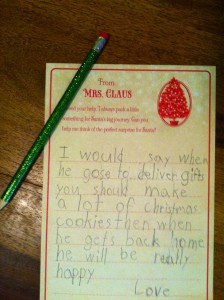 From
MRS. CLAUS
I need your help. I always pack a little
something for Santa's big journey. Can you
help me think of the perfect surprise for Santa?
I would say when
he gose to deliver gifts
you should make
a lot of christmas
cookies then, when
he gets back home
he will be really
happy
Love